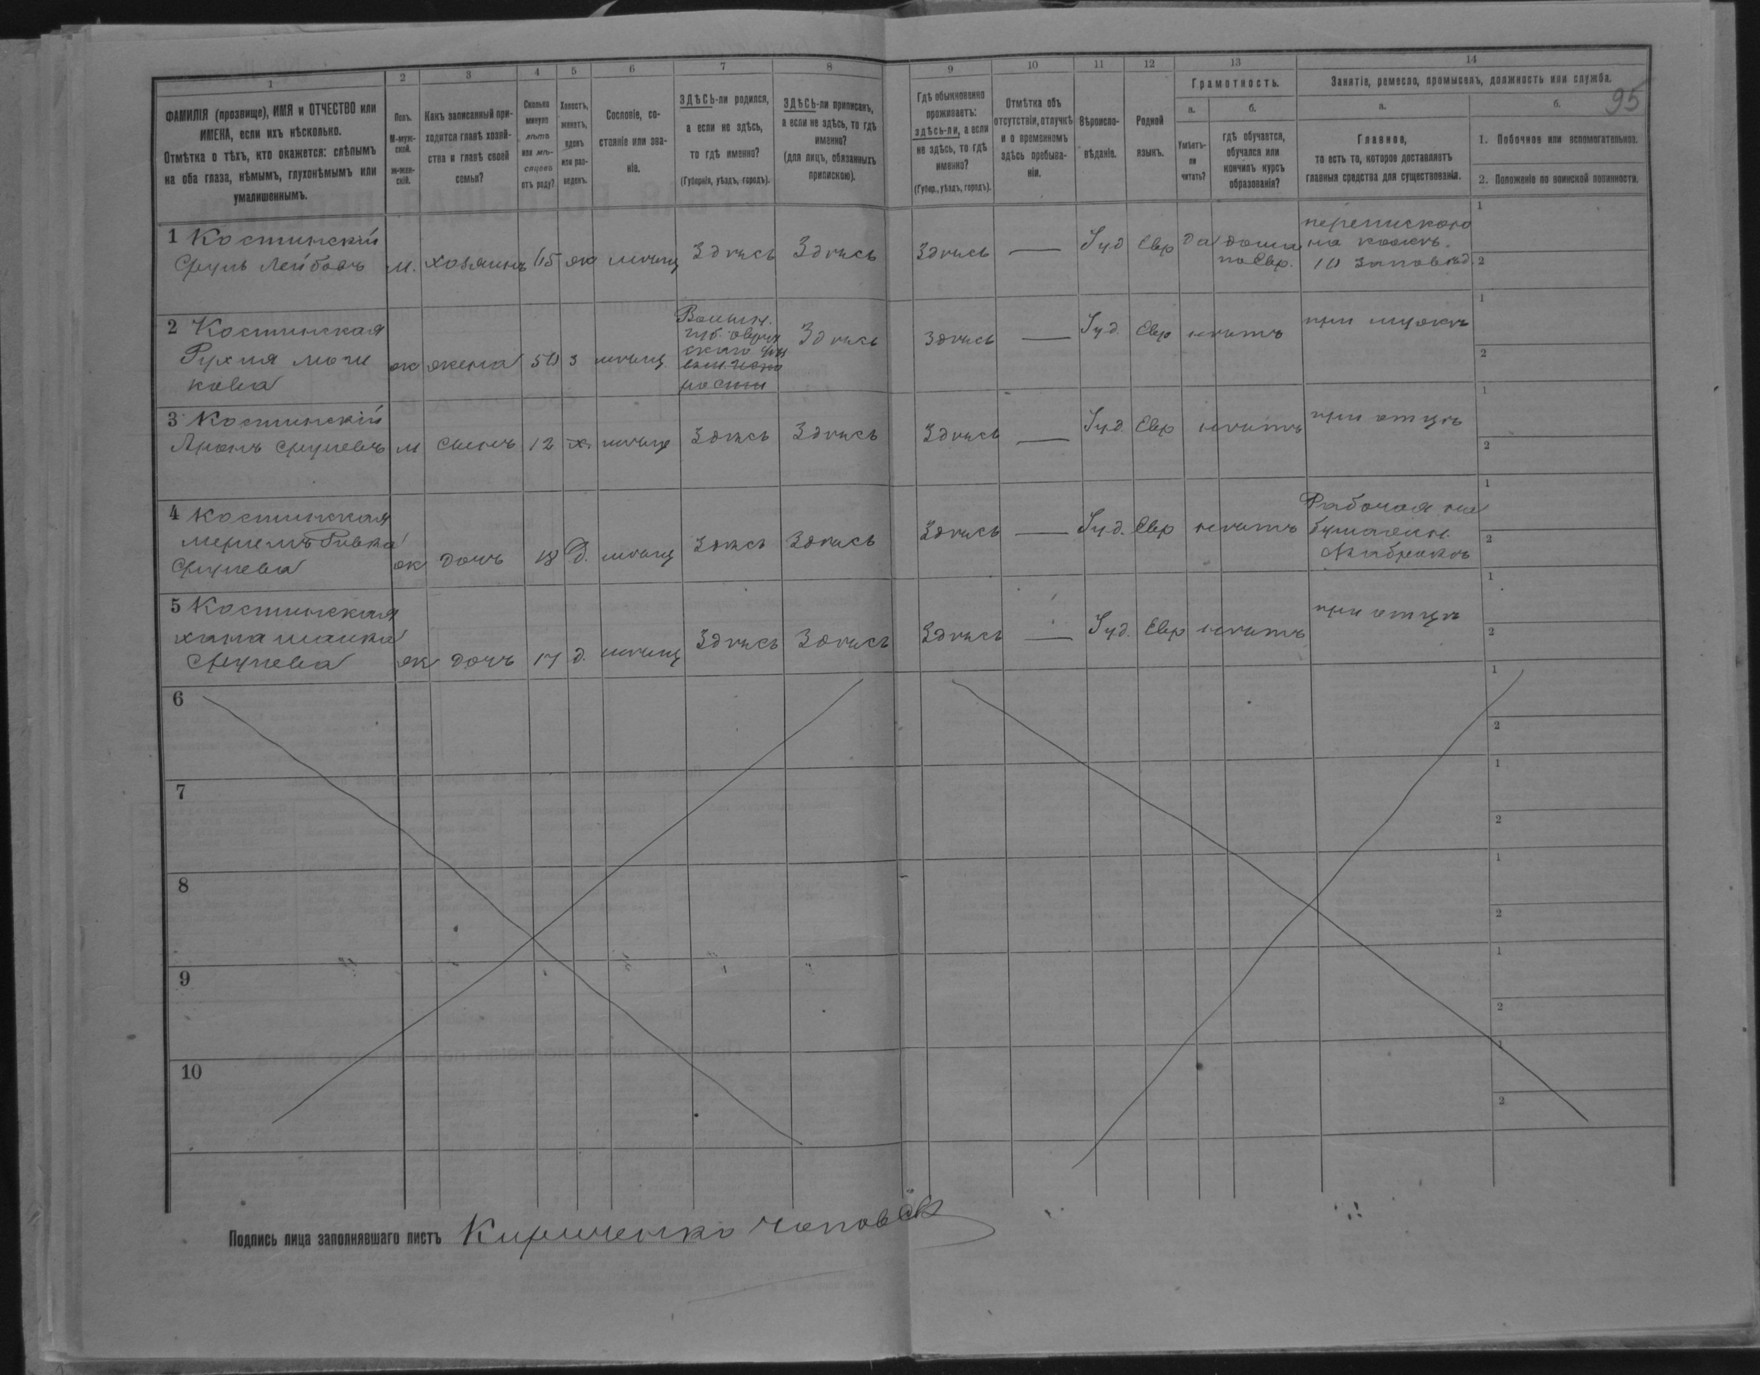 1 2 3 4 5 6 7 8 9 10 11 12 13 14
95
ФАМИЛІЯ (прозвище), ИМЯ и ОТЧЕСТВО или
ИМЕНА, если ихъ нѣсколько.
Отмѣтка о тѣхъ, кто окажется: слѣпымъ
на оба глаза, нѣмымъ, глухонѣмымъ или
умалишеннымъ.
Полъ.
М-муж-
ской.
Ж-жен-
скій.
Какъ записанный при-
ходится главѣ хозяй-
ства и главѣ своей
семьи?
Сколько
минуло
лѣтъ
или мѣ-
сяцевъ
отъ роду?
Холостъ,
женатъ,
вдовъ
или раз-
веденъ.
Сословіе, со-
стояніе или зва-
ніе.
ЗДѢСЬ-ли родился,
а если не здѣсь,
то гдѣ именно?
(Губернія, уѣздъ, городъ).
ЗДѢСЬ-ли приписанъ,
а если не здѣсь, то гдѣ
именно?
(для лицъ, обязанныхъ
припискою).
Гдѣ обыкновенно
проживаетъ:
здѣсь-ли, а если
не здѣсь, то гдѣ
именно?
(Губер., уѣздъ, городъ).
Отмѣтка объ
отсутствіи, отлучкѣ
и о временномъ
здѣсь пребыва-
ніи.
Вѣроиспо-
вѣданіе.
Родной
языкъ.
Грамотность.
а.
Умѣетъ-
ли
читать?
б.
гдѣ обучается,
обучался или
кончилъ курсъ
образованія?
Занятіе, ремесло, промыселъ, должность или служба.
а.
Главное,
то есть то, которое доставляетъ
главныя средства для существованія.
б.
1. Побочное или вспомогательное.
2. Положеніе по воинской повинности.
1 Костинскій
Сруль Лейбовъ м. хозяинъ 65 ж мѣщ Здѣсь Здѣсь Здѣсь — Іуд Евр да дома
по Евр.
перепискою
на кожѣ.
10 заповѣд.
1
2
2 Костинская
Рухля Мош
кова ж жена 50 з мѣщ
Волын.
губ. Овруч
скаго
Здѣсь Здѣсь — Іуд. Евр нѣтъ при мужѣ
1
2
3 Костинскій
Аронъ Срулевъ м сынъ 12 х. мѣщ Здѣсь Здѣсь Здѣсь — Іуд. Евр нѣтъ при отцѣ
1
2
4 Костинская
Меріемъ Ривка
Срулева ж дочь 18 д. мѣщ Здѣсь Здѣсь Здѣсь — Іуд. Евр нѣтъ
Рабочая на
бумажн.
Фабрикѣ
1
2
5 Костинская
хана
Срулева ж дочь 17 д. мѣщ Здѣсь Здѣсь Здѣсь — Іуд. Евр нѣтъ при отцѣ
1
2
6
1
2
7
1
2
8
1
2
9
1
2
10
1
2
Подпись лица заполнявшаго листъ